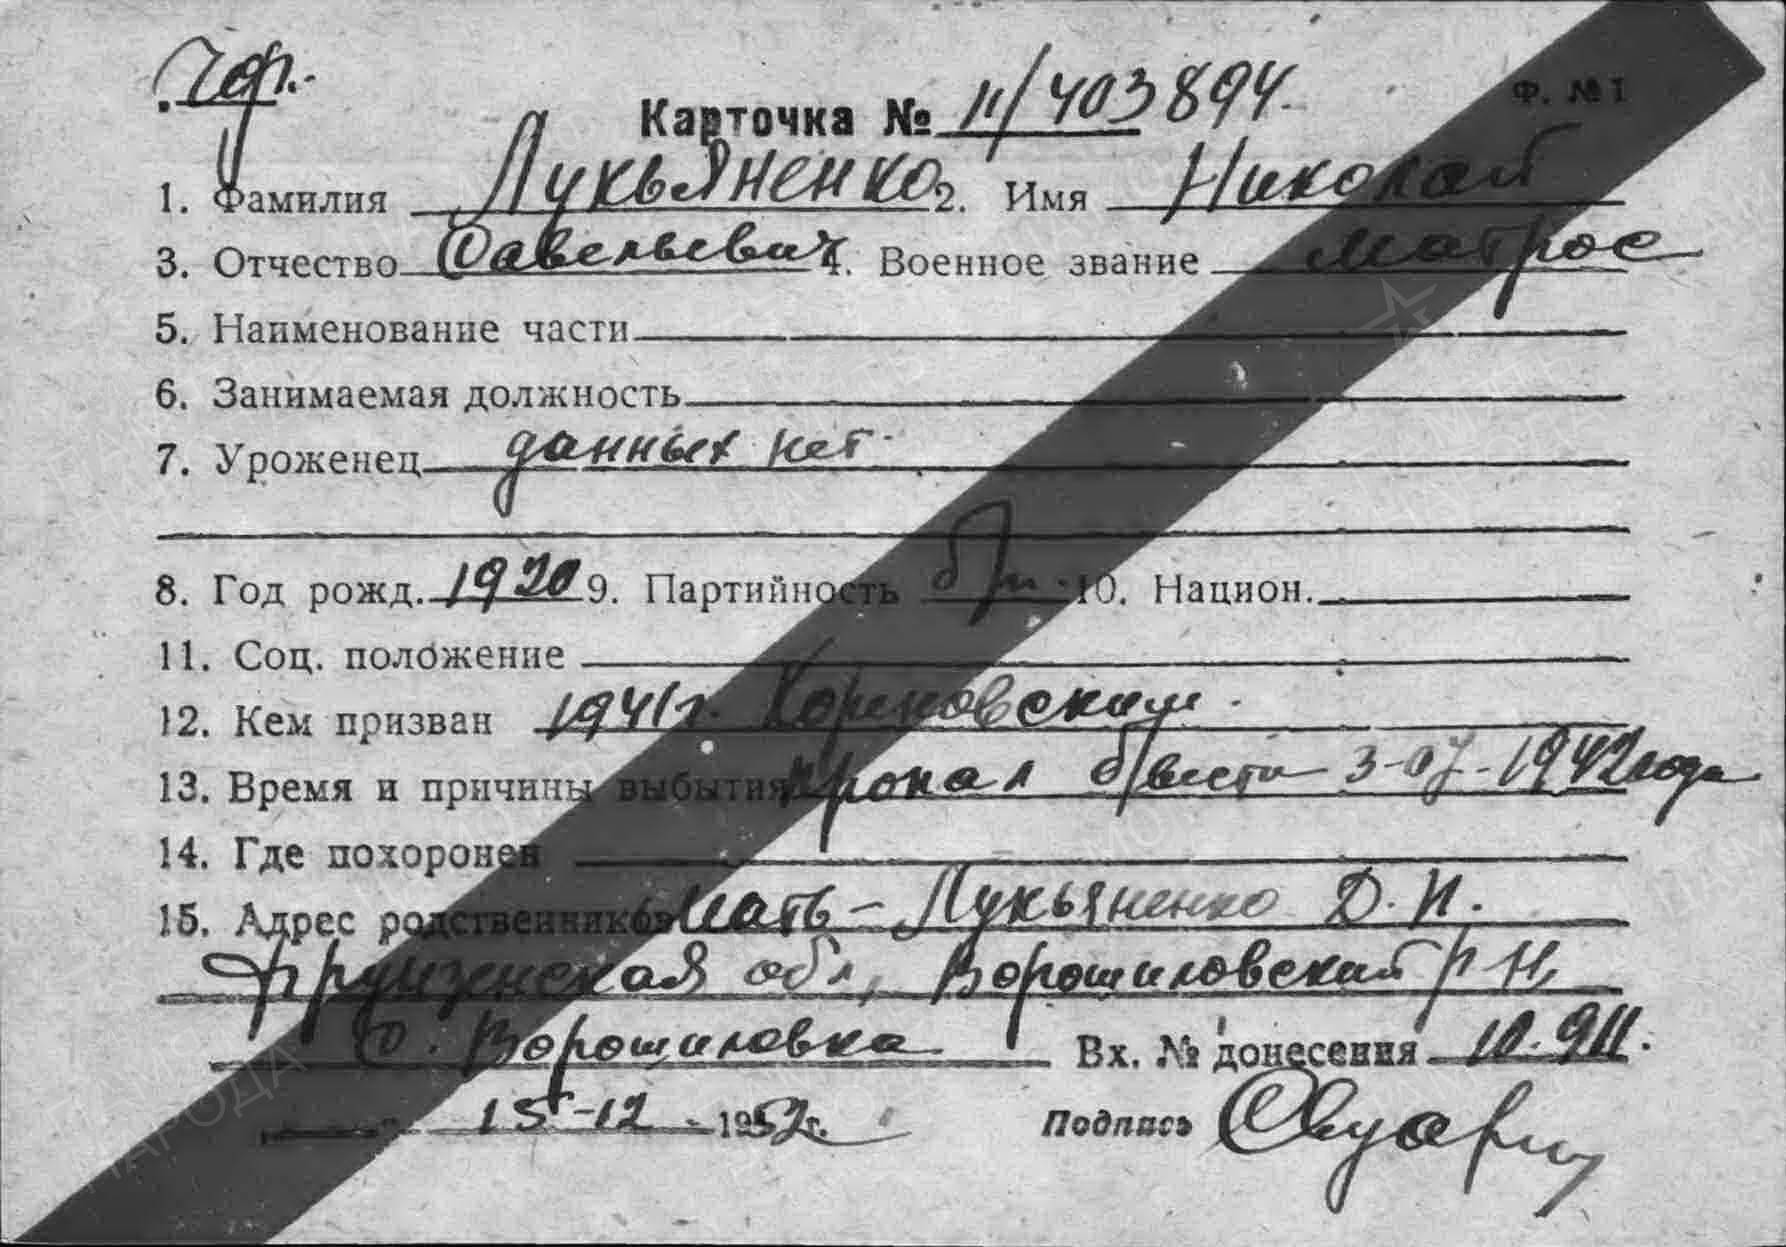 Чф.
Ф. №1
Карточка № 11/403894
1. Фамилия Лукьяненко 2. Имя Николай
3. Отчество Савельевич 4. Военное звание матрос
5. Наименование части
6. Занимаемая должность
7. Уроженец данных нет
8. Год рожд. 1920 9. Партийность б/п 10. Национ.
11. Соц. положение
12. Кем призван 1941г.
13. Время и причины выбытия пропал б/вести 3-07-1942 года
14. Где похоронен
15. Адрес родственников Мать - Лукьяненко Д. И.
Фрунзенская обл, Ворошиловский р-н,
с. Ворошиловка Вх. № донесения
15-12 1952 г. Подпись